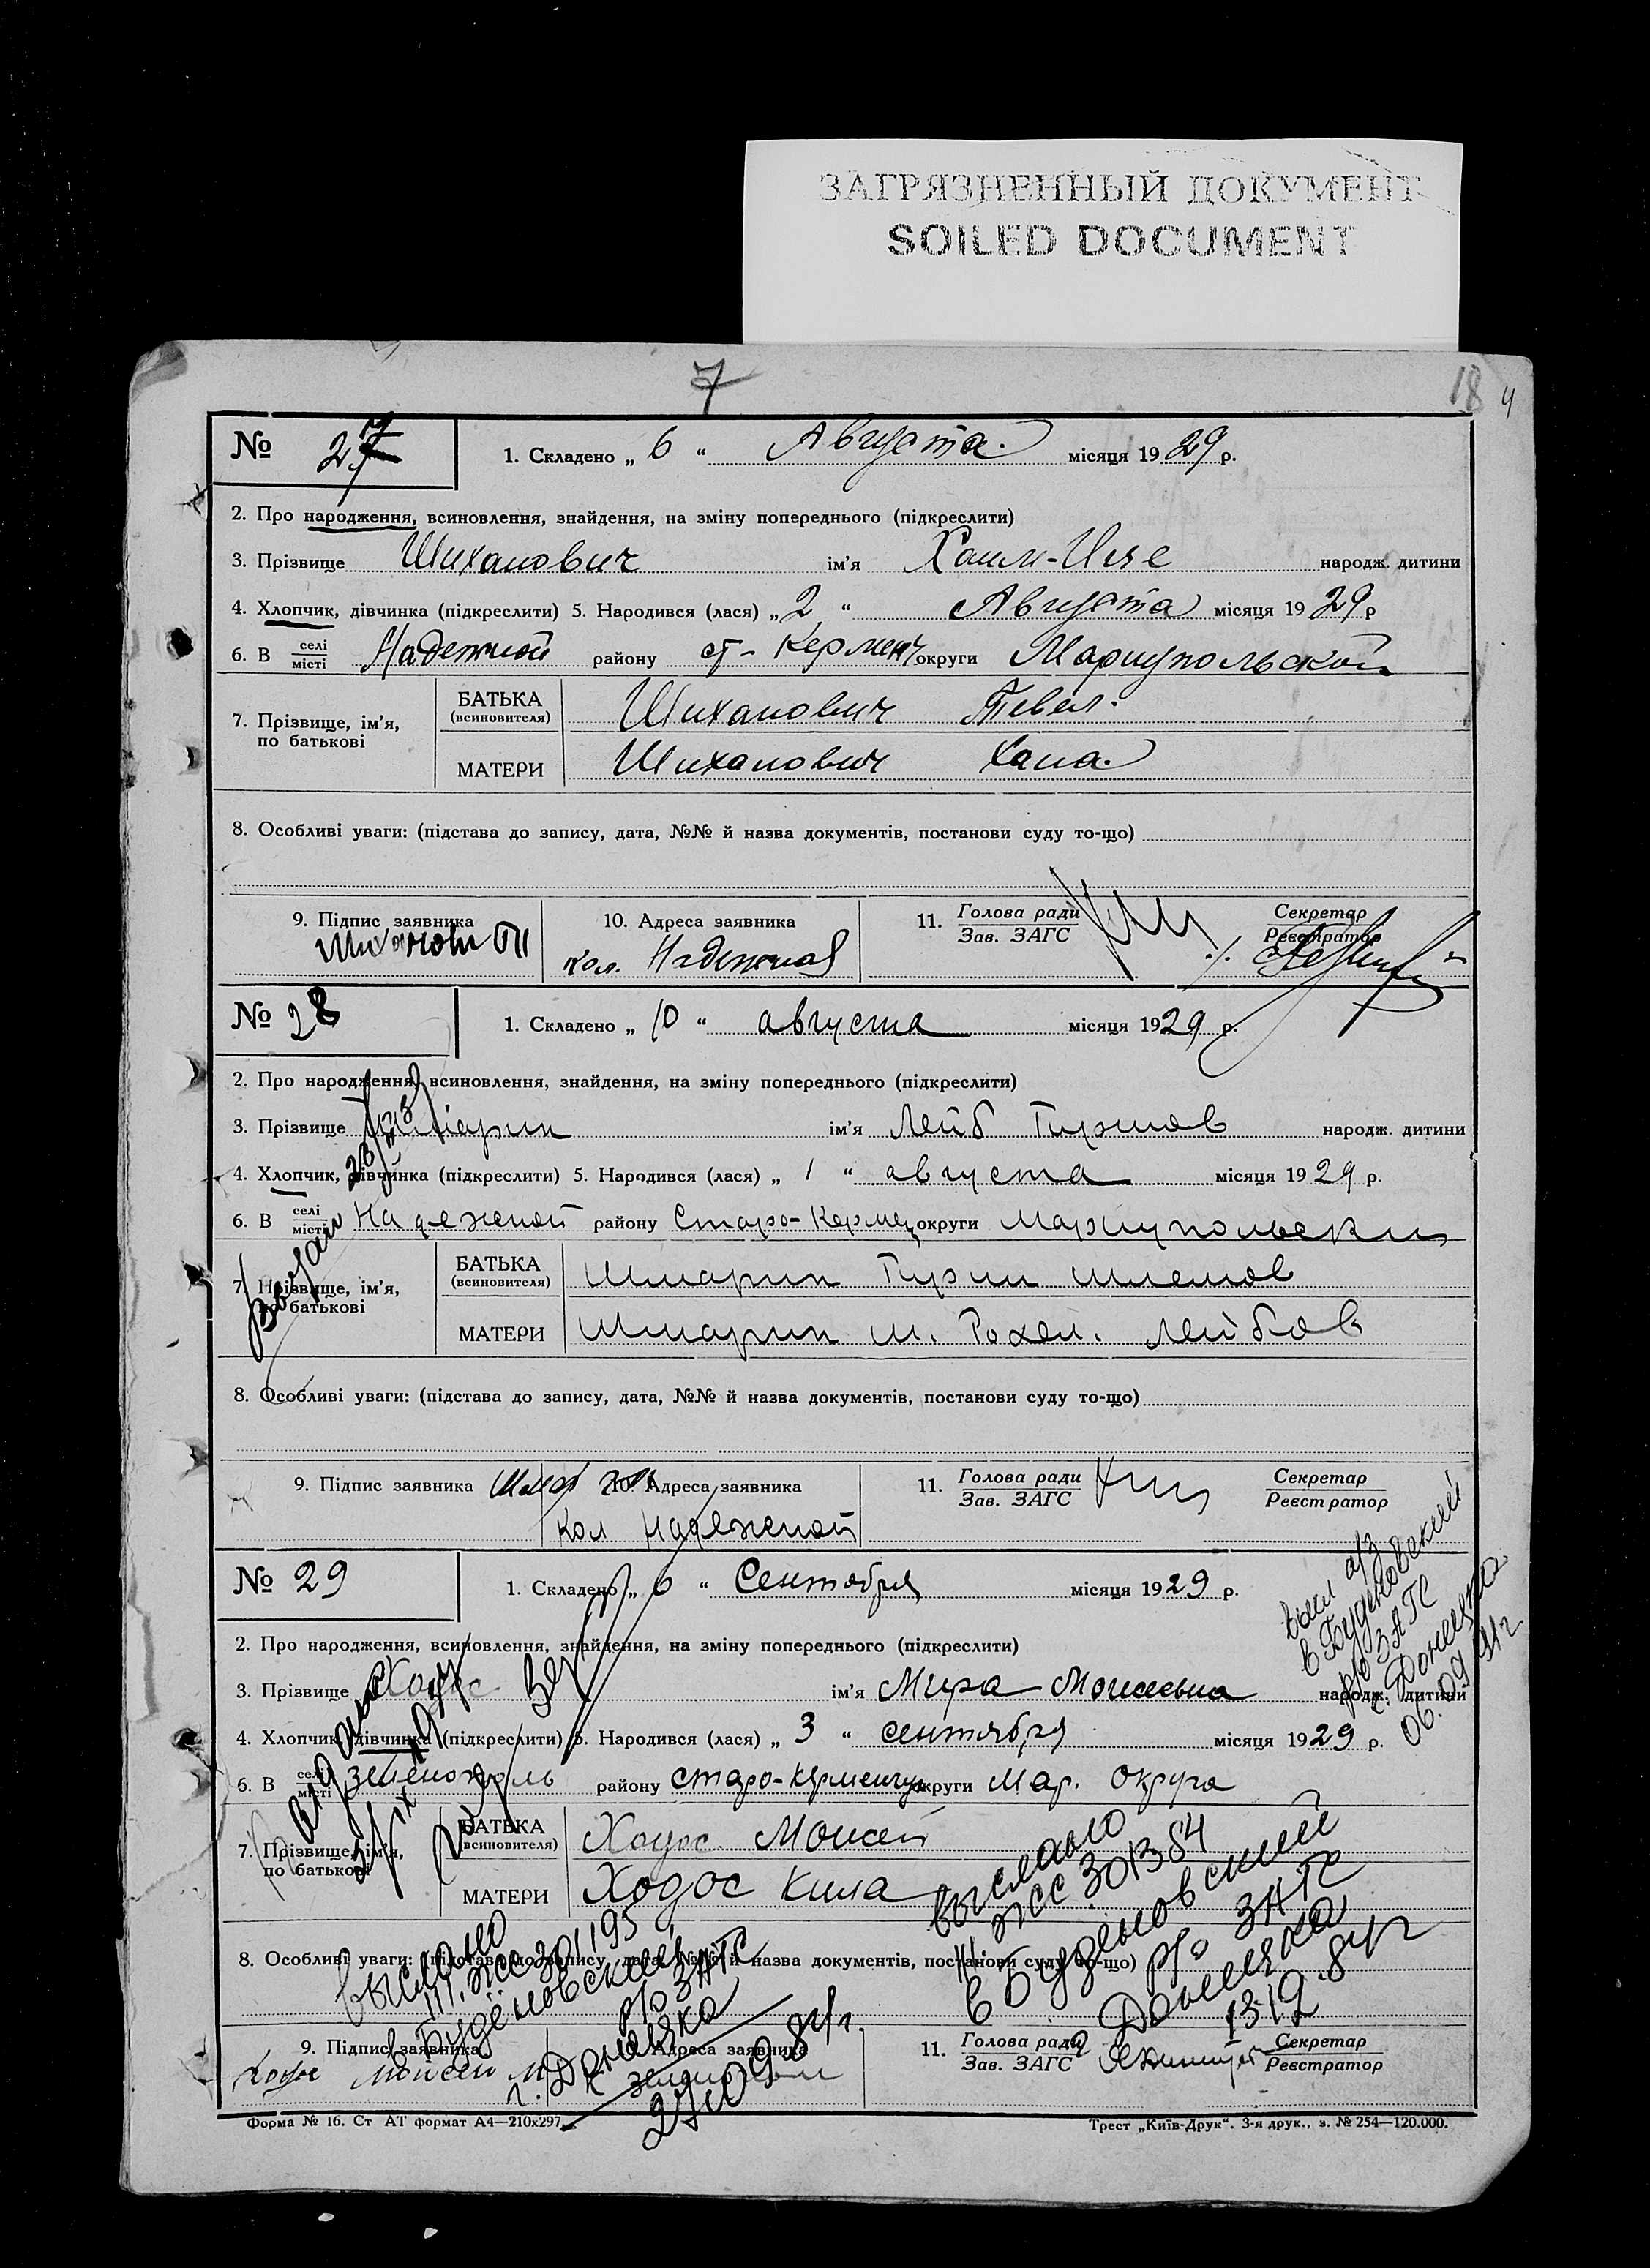 ЗАГРЯЗНЕННЫЙ ДОКУМЕНТ
SOILED DOCUMENT
7
18 4
№ 27 1. Складено „ 6 “ Августа месяця 1929 р.
2. Про народження, всиновлення, знайдення, на зміну попереднього (підкреслити)
3. Прізвище Шиханович ім'я Хаим- народж. дитини
4. Хлопчик, дівчинка (підкреслити) 5. Народився (лася) „ 2 “ Августа місяця 1929 р
6. В селі місті Надежной району ст-Кермен округи Мариупольской
7. Прізвище, ім'я, по батькові
БАТЬКА (всиновителя) Шиханович Тевел
МАТЕРИ Шиханович Хана
8. Особливі уваги: (підстава до запису, дата, №№ й назва документів, постанови суду то-що)
9. Підпис заявника 10. Адреса заявника 11. Голова ради Зав. ЗАГС Секретар Реєстратор
кол. Надежная
№ 28 1. Складено „ 10 “ августа місяця 1929 р.
2. Про народження, всиновлення, знайдення, на зміну попереднього (підкреслити)
3. Прізвище ім'я Лейб Гиршов народж. дитини
4. Хлопчик, дівчинка (підкреслити) 5. Народився (лася) „ 1 “ августа місяця 1929 р.
6. В селі місті Надеженой району Старо-Кермен округи Мариупольски
7. Прізвище, ім'я, по батькові
БАТЬКА (всиновителя) Шмарин Гирш Шлемов
МАТЕРИ Шмарин ш. Рохел. Лейбов
8. Особливі уваги: (підстава до запису, дата, №№ й назва документів, постанови суду то-що)
9. Підпис заявника 10. Адреса заявника 11. Голова ради Зав. ЗАГС Секретар Реєстратор
кол Надеженой
№ 29 1. Складено „ 6 “ Сентября місяця 1929 р.
2. Про народження, всиновлення, знайдення, на зміну попереднього (підкреслити)
3. Прізвище Ходос ім'я Мира Моисеевна народж. дитини
4. Хлопчик, дівчинка (підкреслити) 5. Народився (лася) „ 3 “ сентября місяця 1929 р.
6. В селі місті Зеленополь району старо-керменчик округи Мар. округа
7. Прізвище, ім'я, по батькові
БАТЬКА (всиновителя) Ходос Моисей
МАТЕРИ Ходос Кила
8. Особливі уваги: (підстава до запису, дата, №№ й назва документів, постанови суду то-що)
9. Підпис заявника Адреса заявника 11. Голова ради Зав. ЗАГС Секретар Реєстратор
Ходос Мойсей М
в Буденовский
р/о ЗАГС
г. Донецка
06.09.91г.
выслано
III. ЖС 301195
в Будёновский
р/о ЗАГС
г. Донецка
27.09.84г.
выслано
ЖС 301384
в Буденовский
р/о ЗАГС
Донецка
1312.84г
Форма № 16. Ст АТ формат А4—210х297.
Трест „Київ-Друк“. 3-я друк., з. № 254—120.000.